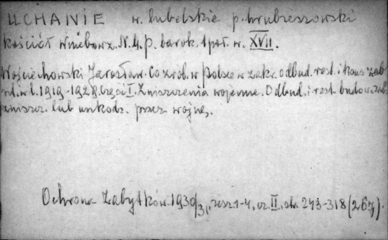 UCHANIE w. lubelskie p. hrubieszowski
kościół Wniebowz. N.M.P. barok. 1 poł. w. XVII.
Wojciechowski Jarosław. Co zrob. w Polsce w zakr. odbud. rest. i kons. zab.
w l. 1919-1929. Część I. Zniszczenia wojenne. Odbud. i rest. budowli
zniszcz. lub uszkodz. przez wojnę.
Ochrona Zabytków. 1930/31, zesz. 1-4, cz. II, str. 243-318 (267).